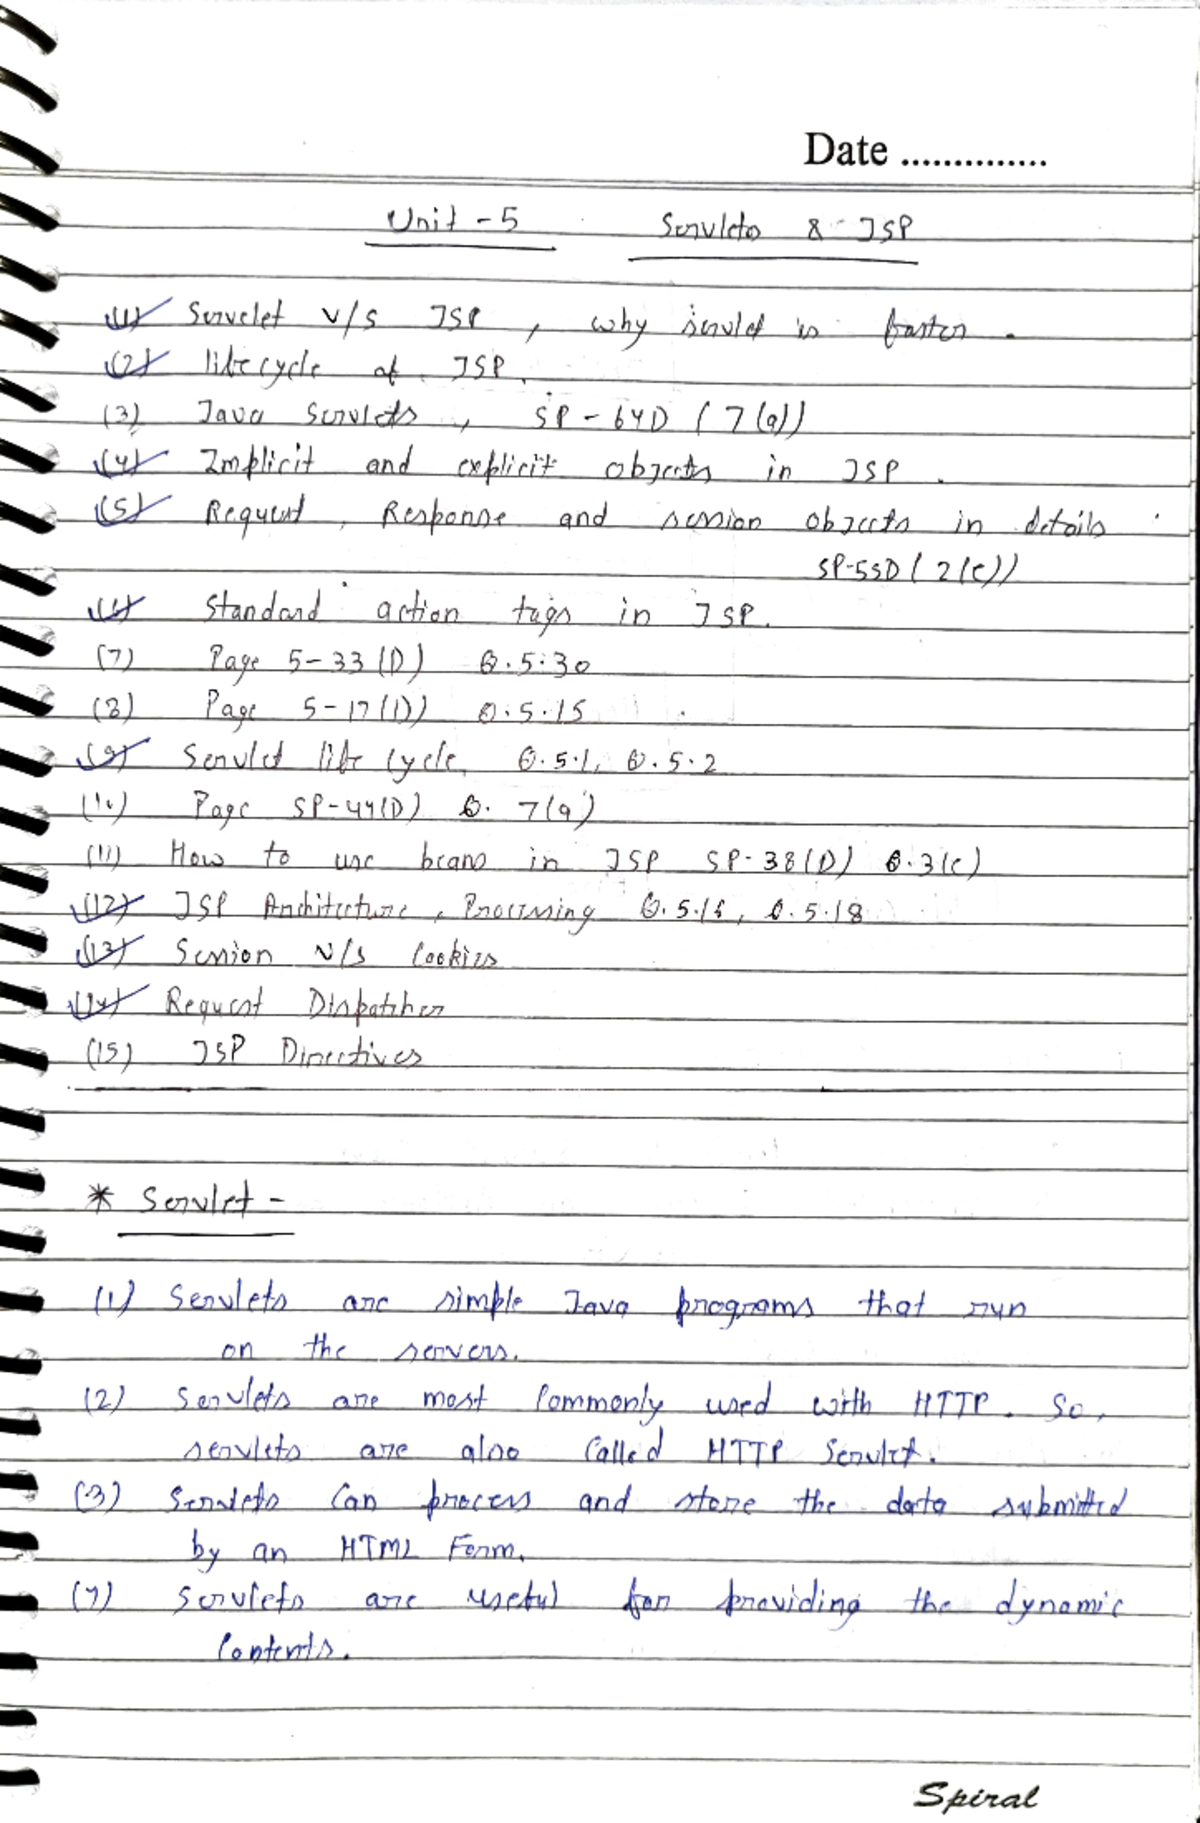 Date ..............
Unit - 5 Servlets & JSP
(1) Servelet v/s JSP, why servlet is faster.
(2) life cycle of JSP.
(3) Java Servlets, SP-64D (7(a))
(4) Implicit and explicit objects in JSP.
(5) Request, Response and session objects in details.
SP-55D (2(c))
(6) Standard action tags in JSP.
(7) Page 5-33(D) Q.5.30
(8) Page 5-17(D) Q.5.15
(9) Servlet life cycle, Q.5.1, Q.5.2
(10) Page SP-44(D) Q. 7(a)
(11) How to use beans in JSP SP-38(D) Q.3(c)
(12) JSP Architecture, Processing Q.5.16, Q.5.18
(13) Session V/s Cookies
(14) Request Dispatcher
(15) JSP Directives
* Servlet -
(1) Servlets are simple Java programs that run
on the servers.
(2) Servlets are most Commonly used with HTTP. So,
servlets are also Called HTTP Servlet.
(3) Servlets Can process and store the data submitted
by an HTML Form.
(4) Servlets are useful for providing the dynamic
Contents.
Spiral